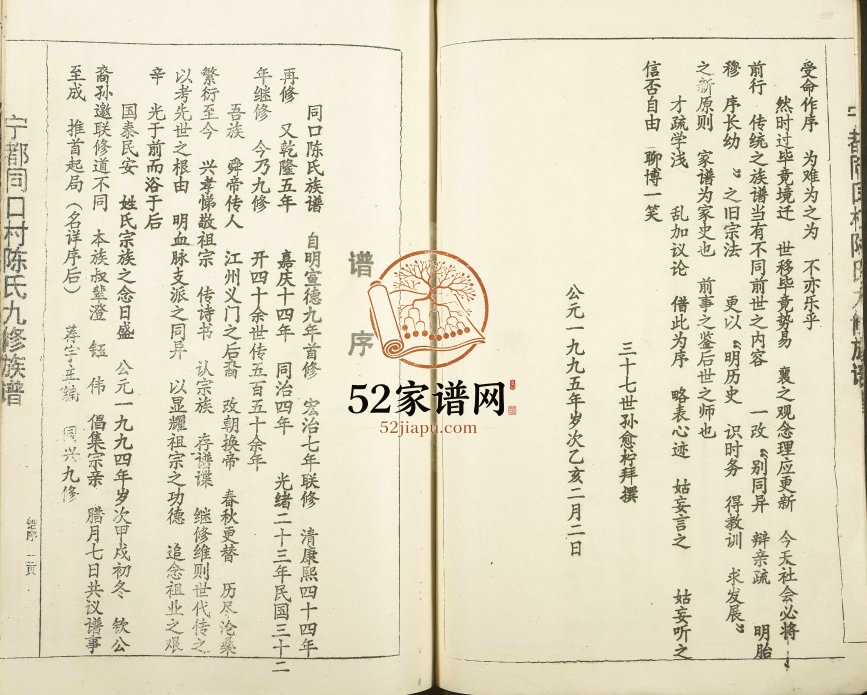 受命作序 为难为之为 不亦乐乎
然时过毕竟境迁 世移毕竟势易 襄之观念理应更新 今天社会必将
前行 传统之族谱当有不同前世之内容 一改“别同异 辩亲疏 明胎
穆 序长幼”之旧宗法 更以“明历史 识时务 得教训 求发展”
之新原则 家谱为家史也 前事之鉴后世之师也
才疏学浅 乱加议论 借此为序 略表心迹 姑妄言之 姑妄听之
信否自由 聊博一笑
三十七世孙愈柠拜撰
公元一九九五年岁次乙亥二月二日
谱序
同口陈氏族谱 自明宣德九年首修 宏治七年联修 清康熙四十四年
再修 又乾隆五年 嘉庆十四年 同治四年 光绪二十三年民国三十二
年继修 今乃九修 开四十余世传五百五十余年
吾族 舜帝传人 江州义门之后裔 改朝换帝 春秋更替 历尽沧桑
繁衍至今 兴孝悌敬祖宗 传诗书 认宗族 存谱谍 继修维则世代传之
以考先世之根由 明血脉支派之同异 以显耀祖宗之功德 追念祖业之艰
辛 光于前而浴于后
国泰民安 姓氏宗族之念日盛 公元一九九四年岁次甲戌初冬 钦公
裔孙邀联修道不同 本族叔辈澄 钰 伟 倡集宗亲 腊月七日共议谱事
至成 推首起局（名详序后） 蒋宇主编 同兴九修
谱序 二页
宁都同口村陈氏九修族谱
52家谱网
52jiapu.com